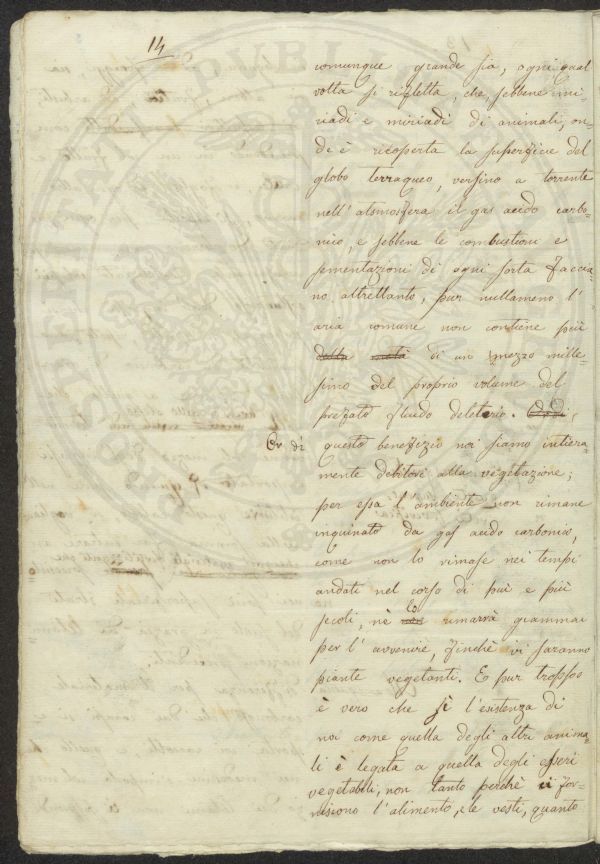 14
comunque grande sia, ogni qual
volta si rifletta, che, sebbene mi-
riadi e miriadi di animali, on-
de è ricoperta la superficie del
globo terraqueo, versino a torrente
nell' atsmosfera il gas acido carbo-
nico, e sebbene le combustioni e
fementazioni di ogni sorta faccia-
no altrettanto, pur nullameno l'
aria comune non contiene più
della metà di un mezzo mille-
simo del proprio volume del
prefato fluido deleterio. Or di
Or di questo benefizio noi siamo intiera-
mente debitori alla vegetazione;
per essa l'ambiente non rimane
inquinato da gas acido carbonico,
come non lo rimase nei tempi
andati nel corso di più e più
secoli, nè lo rimarrà giammai
per l' avvenire, finchè vi saranno
piante vegetanti. E pur troppo
è vero che sì l'esistenza di
noi come quella degli altri anima-
li è legata a quella degli esseri
vegetabili, non tanto perchè ci for-
niscono l'alimento, e le vesti, quanto